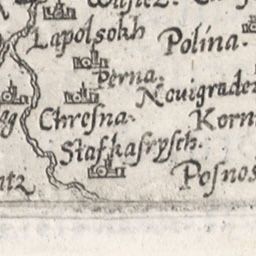 Lapolsokh
Polina.
Perna.
Novigrader
Chresna.
Korn
Stafkafrysch.
Posnos